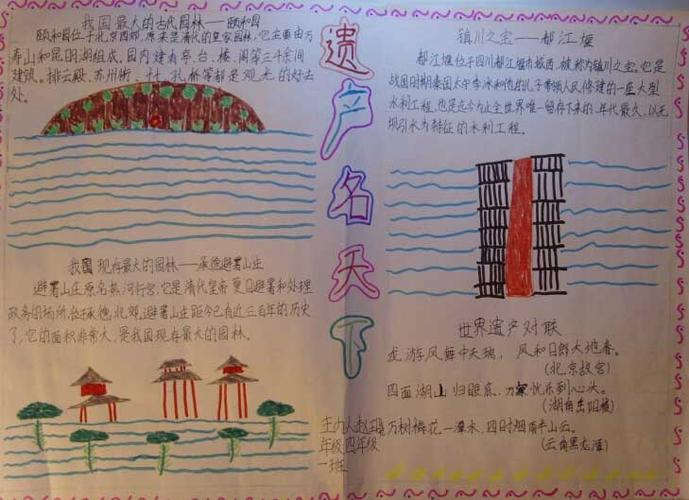 我国最大的古代园林——颐和园
颐和园位于北京西郊,原来是清代的皇家园林,它主要由万
寿山和昆明湖组成。园内建有亭、台、楼、阁等三千余间
建筑。排云殿、苏州街、十七孔桥等都是观光的好去
处。
遗产名天下
我国现存最大的园林——承德避暑山庄
避暑山庄原名热河行宫,它是清代皇帝夏日避暑和处理
政务的场所,位于承德北郊,避暑山庄距今已有近三百年的历史
了,它的面积非常大,是我国现存最大的园林。
镇川之宝——都江堰
都江堰位于四川都江堰市城西,被称为镇川之宝。它是
战国时期秦国太守李冰和他的儿子带领人民修建的一座大型
水利工程,也是迄今为止全世界唯一留存下来的,年代最久,以无
坝引水为特征的水利工程。
世界遗产对联
龙游凤舞中天瑞,风和日朗大地春。
(北京故宫)
四面湖山归眼底,万家忧乐到心头。
(湖南岳阳楼)
万树梅花一潭水,四时烟雨半山云。
(云南黑龙潭)
主办人
年级:四年级
一班